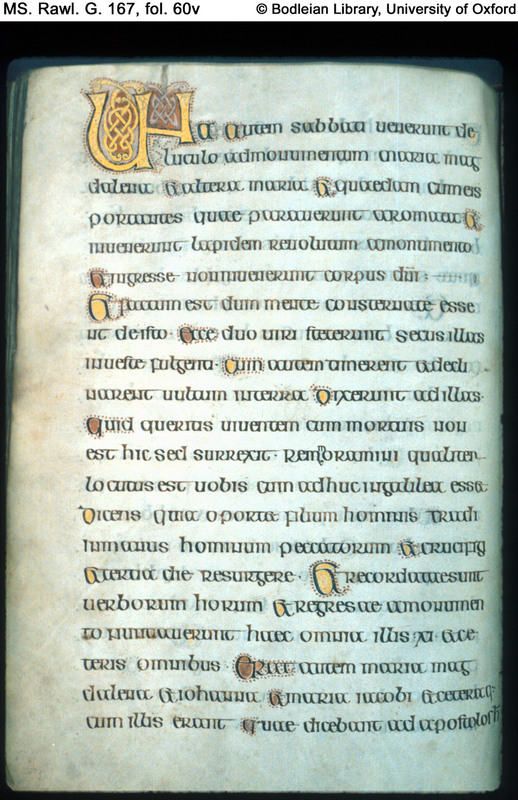 MS. Rawl. G. 167, fol. 60v © Bodleian Library, University of Oxford
Una autem sabbati uenerunt de
luculo ad monumentum maria mag
dalena & altera maria & quaedam cum eis
portantes quae parauerunt aromata &
inuenerunt lapidem reuolutum a monumento
& ingresse non inuenerunt corpus dni :
& factum est dum mente consternate esse
nt de isto · Ecce duo uiri steterunt secus illas
in ueste fulgenti · Cum autem timerent & decli
narent uultum in terra Dixerunt ad illas ·
Quid queritis uiuentem cum mortuis non
est hic sed surrexit · Rememoramini qualiter
locutus est uobis cum adhuc in galilea esse
Dicens quia oportet filium hominis tradi
in manus hominum peccatorum & crucifig
& tertia die resurgere · & recordatae sunt
uerborum horum & regresae a monumen
to nuntiauerunt haec omnia illis xi & ce
teris omnibus · Erat autem maria mag
dalena & iohanna & maria iacobi & ceterae q
cum illis erant quae dicebant ad apostolos h